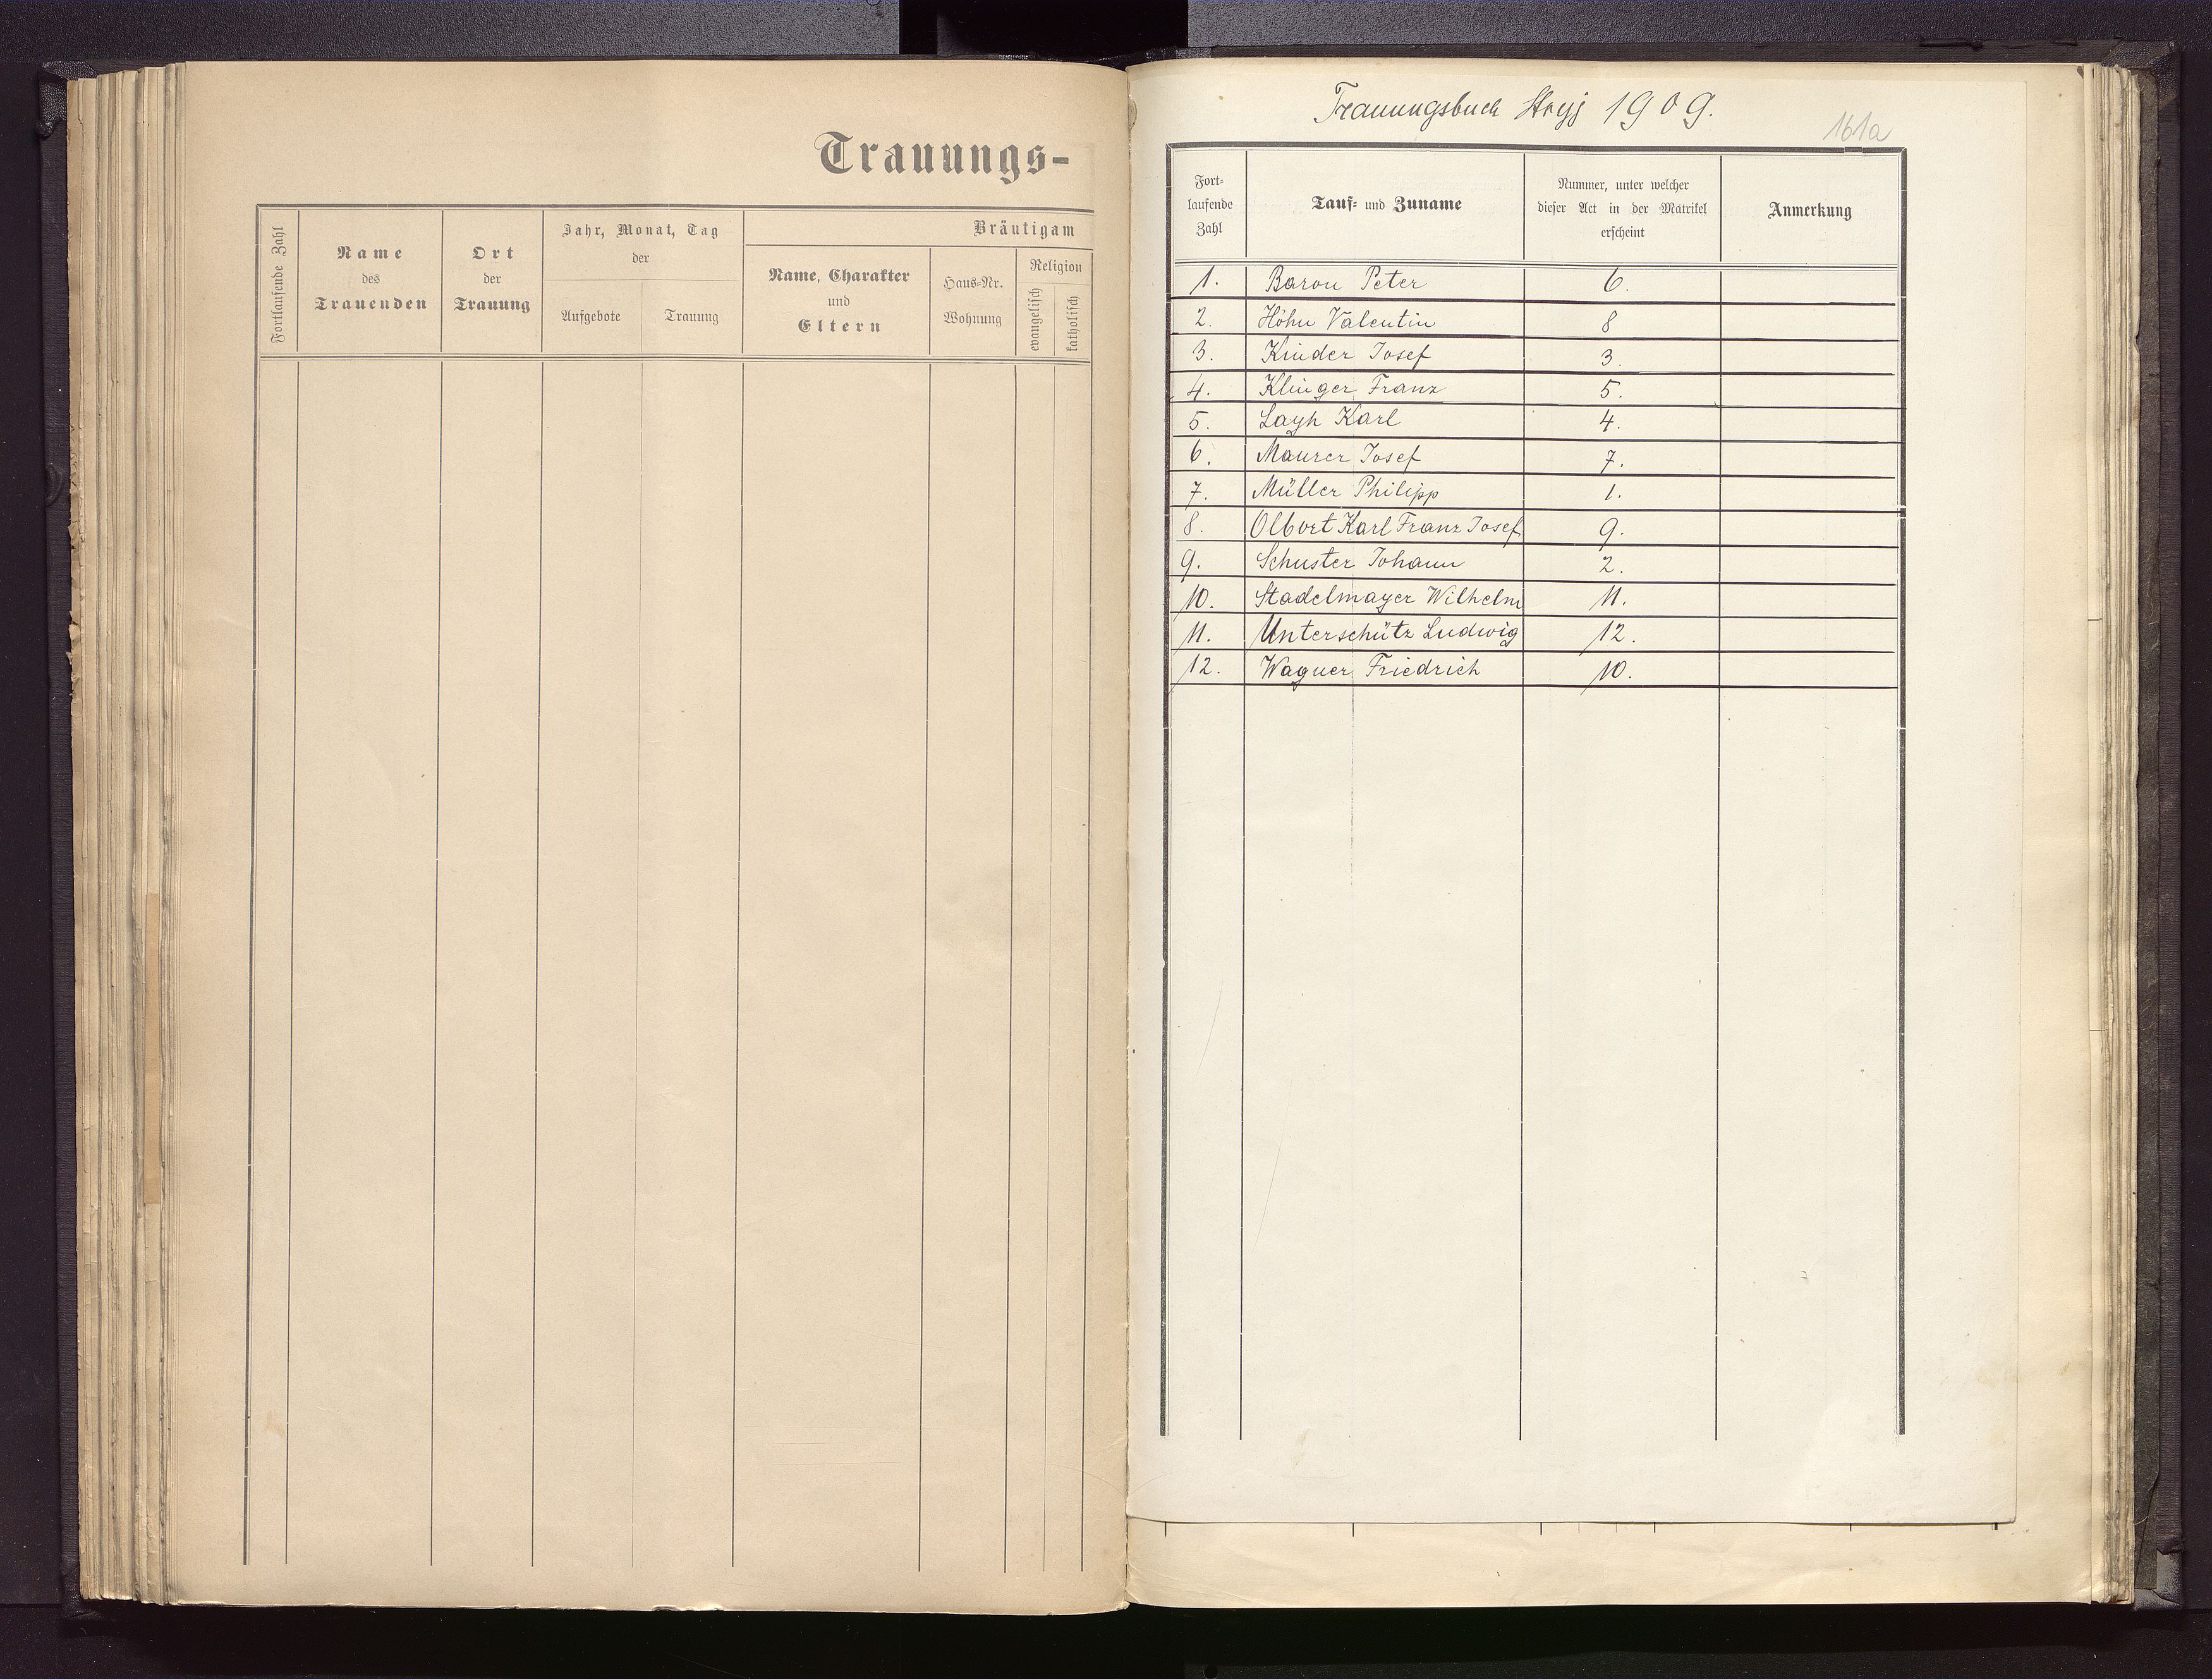 Trauungs-
Fortlaufende Zahl
Name
des
Trauenden
Ort
der
Trauung
Jahr, Monat, Tag
der
Aufgebote
Trauung
Bräutigam
Name, Charakter
und
Eltern
Haus-Nr.
Wohnung
Religion
evangelisch
katholisch
Trauungsbuch Stryj 1909.
161a
Fort-
laufende
Zahl
Tauf- und Zuname
Nummer, unter welcher
dieser Act in der Matrikel
erscheint
Anmerkung
1. Baron Peter 6.
2. Höhn Valentin 8
3. Kinder Josef 3.
4. Klinger Franz 5.
5. Layh Karl 4.
6. Maurer Josef 7.
7. Müller Philipp 1.
8. Olbort Karl Franz Josef 9.
9. Schuster Johann 2.
10. Stadelmayer Wilhelm 11.
11. Unterschütz Ludwig 12.
12. Wagner Friedrich 10.